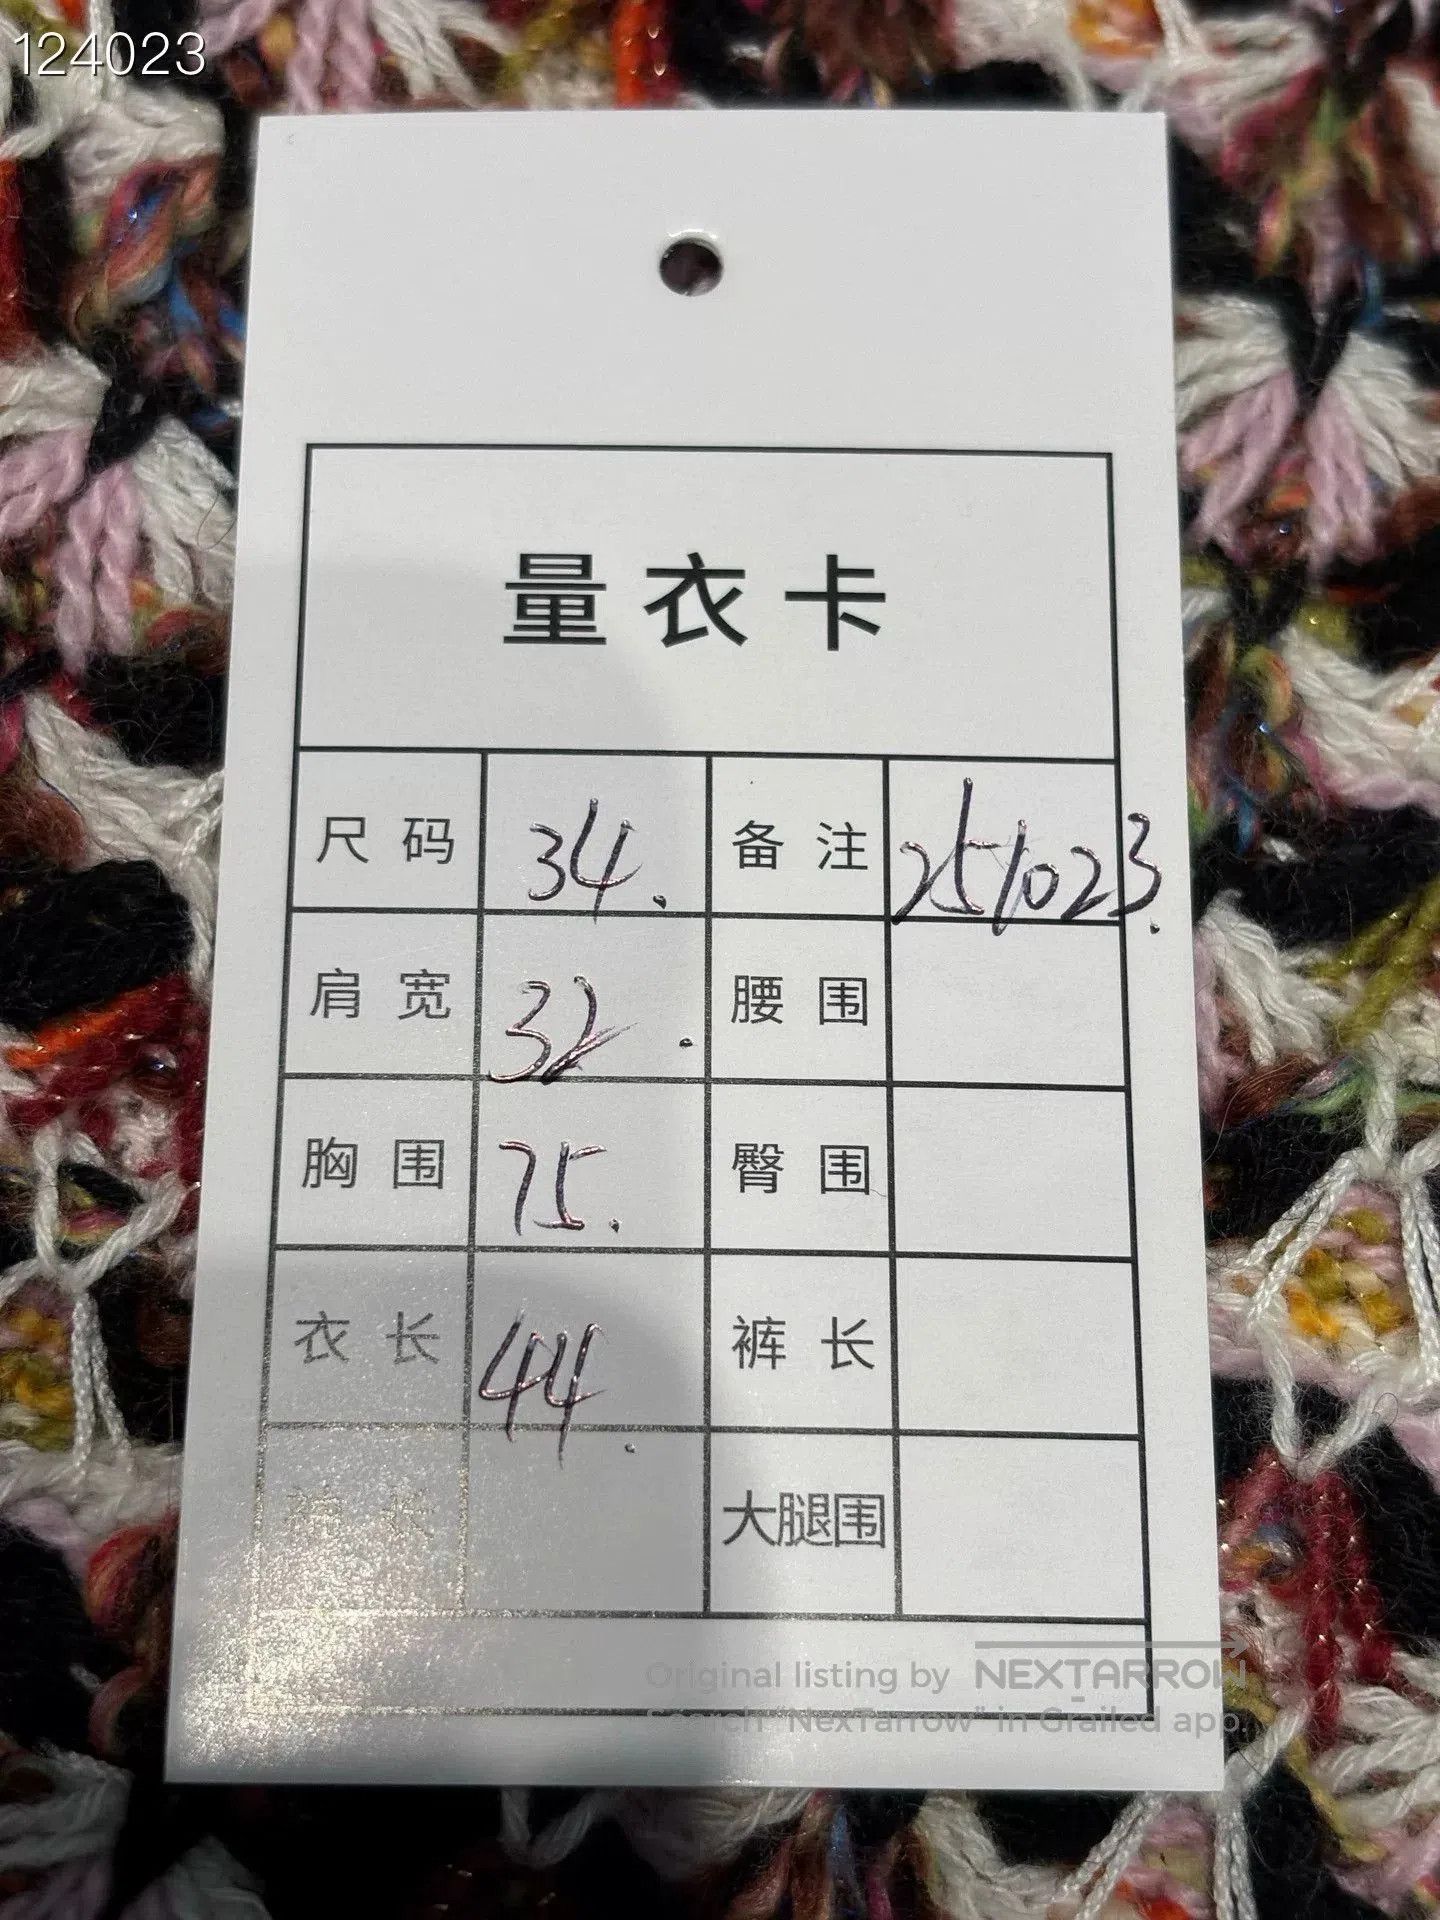 124023
量衣卡
尺码 34. 备注 251023.
肩宽 32. 腰围
胸围 75. 臀围
衣长 44. 裤长
袖长 大腿围
Original listing by NEXTARROW
Search "NexTarrow" in Grailed app.